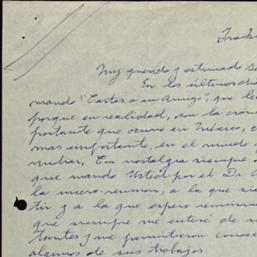 Muy querido y estimado
En los últimos
mando "Cartas a un Amigo", que le
porque en realidad, son la cróni
portante que ocurre en México, e
mas importante, en el mundo
nubiar, Con nostalgia siempre
que mando Usted por el Dr.
la micro-reunion, a la que si
tir y a la que espero
que siempre me enteré de
tantes y me permitieron conoc
algunos de sus trabajos.